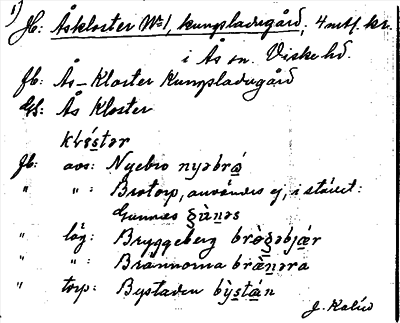 1) Jb: Åskloster No 1, kungsladugård, 4 mtl. kr.
i Ås sn. Viske hd.
Jb: Ås-Kloster Kungsladugård
Gk: Ås Kloster
klǫ́stər
Jb: avs: Nyebro nyəbrǫ́
" " : Brotorp, användes ej, i stället:
Gunnas gùnəs
" läg: Bryggeberg brø̀gəbjær
" " : Brännorna brǽnəra
" torp: Bystaden bỳstán
J. Kalén